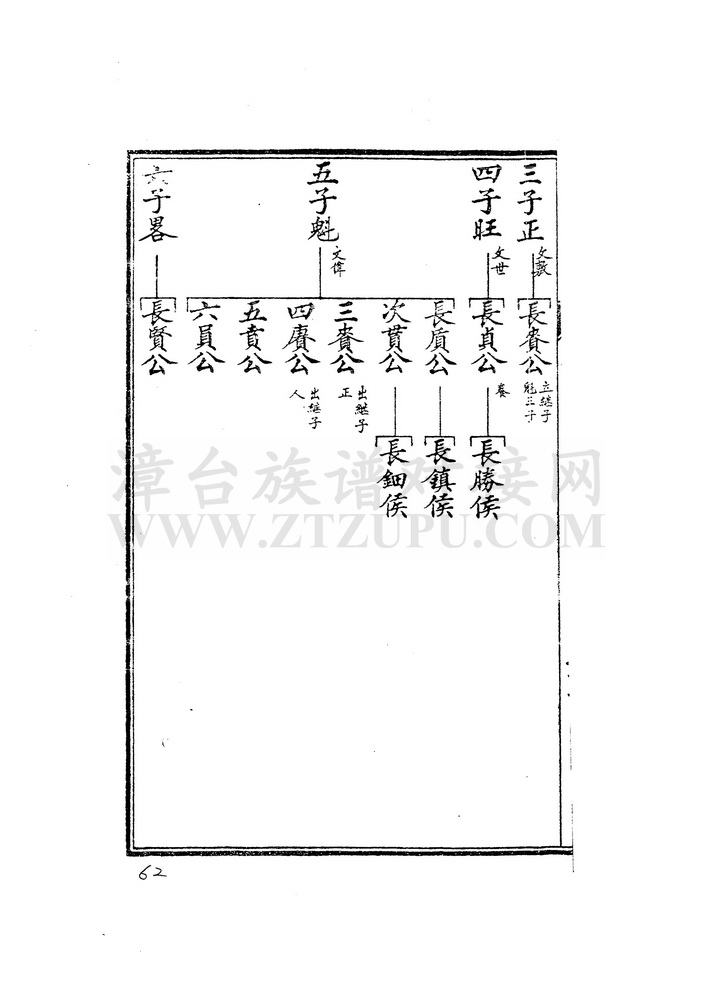 三子正
文敷
四子旺
文世
五子魁
文偉
六子畧
長賚公
立继子
魁三子
長貞公
養
長盾公
次貫公
三賚公
出继子
正
四賡公
出继子
人
五賁公
六員公
長賢公
長勝侯
長鎮侯
長鈿侯
漳台族谱对接网
WWW.ZTZUPU.COM
62